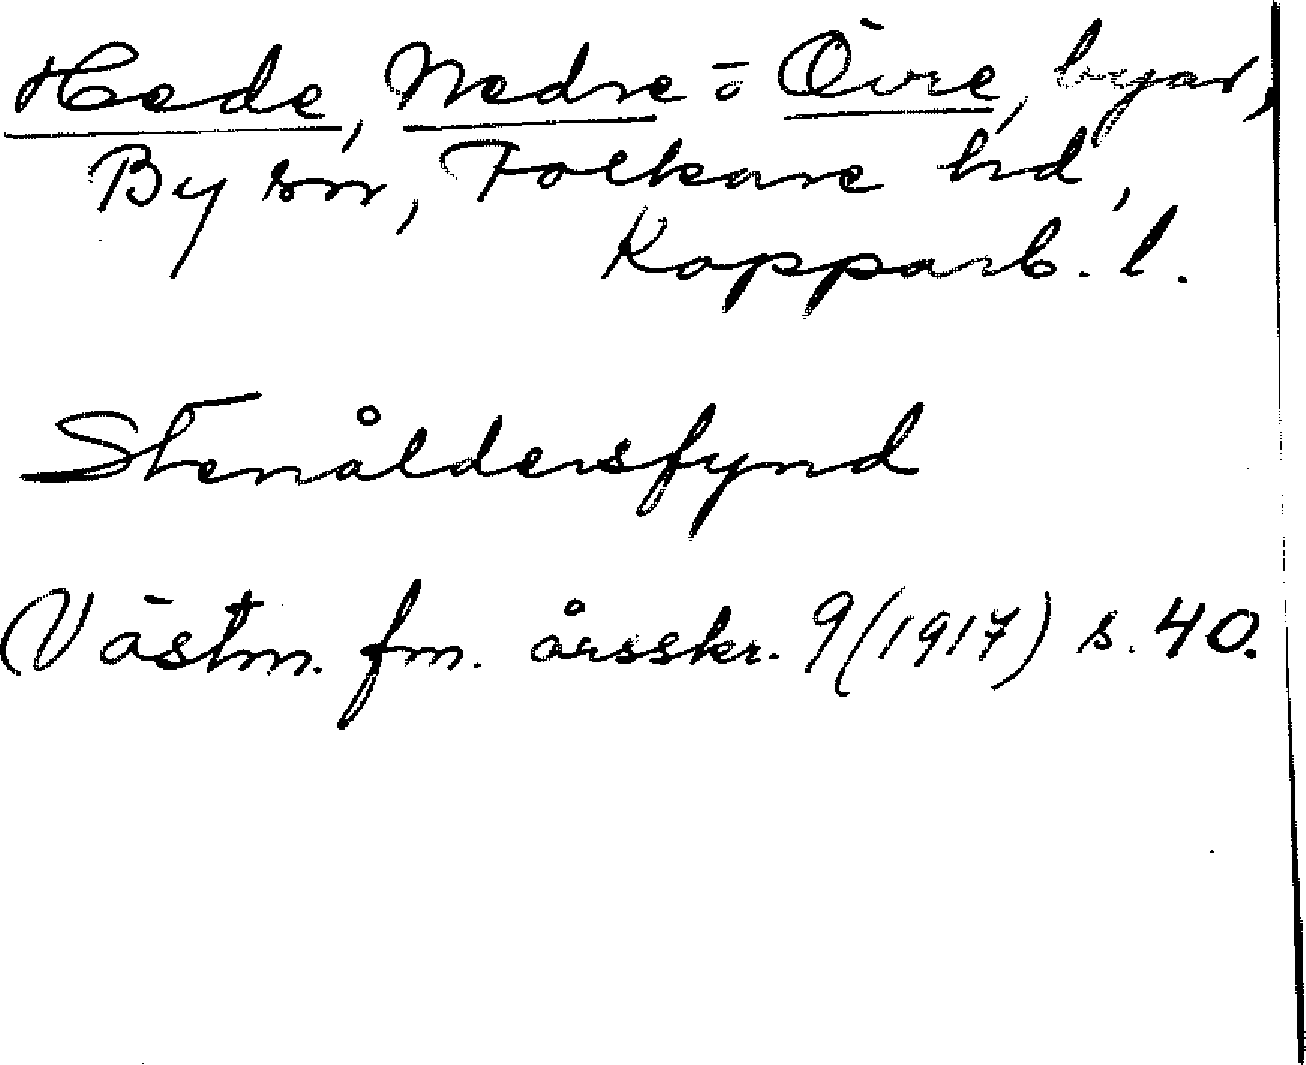 Hede, Nedre- o Övre, byar,
By sn, Folkare hd,
Kopparb. l.
Stenåldersfynd
Västm. fm. årsskr. 9 (1917) s. 40.